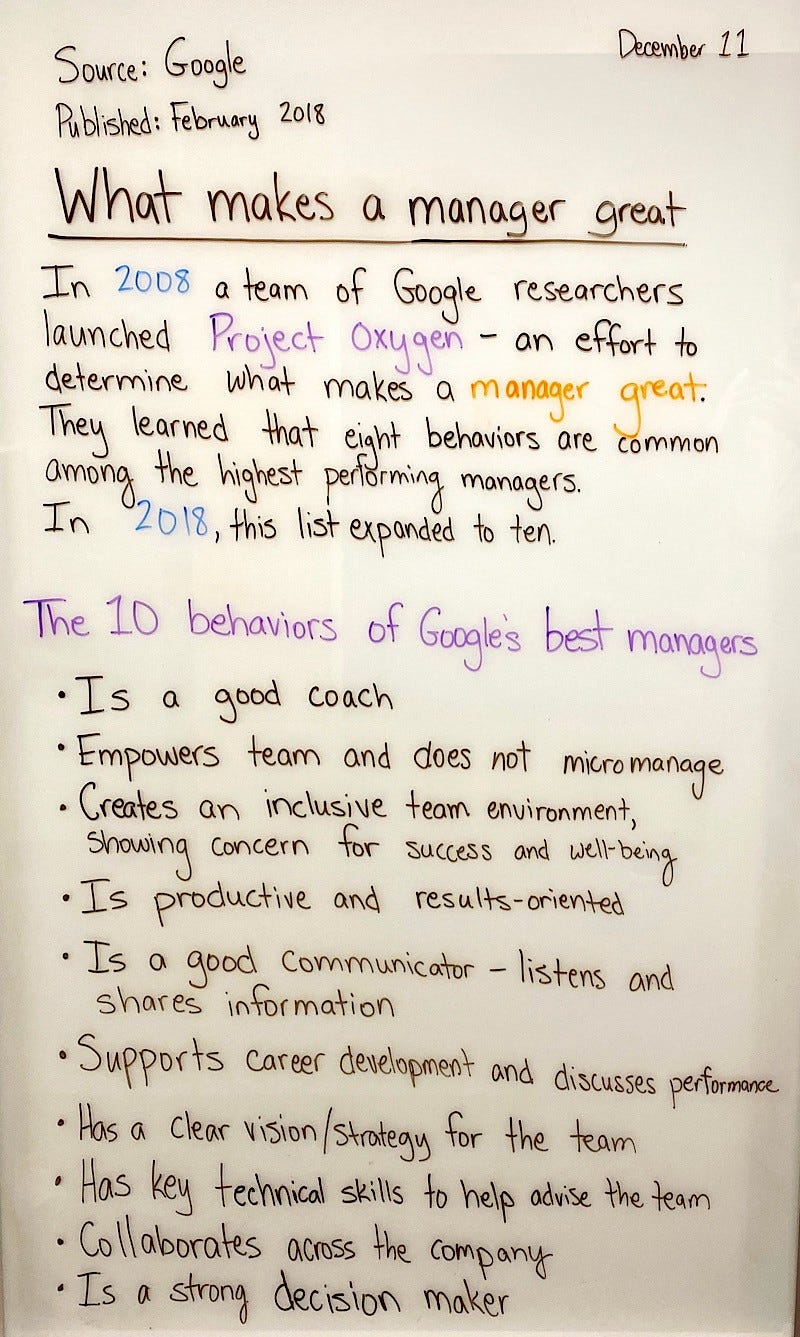 December 11
Source: Google
Published: February 2018
What makes a manager great
In 2008 a team of Google researchers
launched Project Oxygen - an effort to
determine what makes a manager great.
They learned that eight behaviors are common
among the highest performing managers.
In 2018, this list expanded to ten.
The 10 behaviors of Google's best managers
• Is a good coach
• Empowers team and does not micromanage
• Creates an inclusive team environment,
showing concern for success and well-being
• Is productive and results-oriented
• Is a good communicator - listens and
shares information
• Supports career development and discusses performance
• Has a clear vision/strategy for the team
• Has key technical skills to help advise the team
• Collaborates across the company
• Is a strong decision maker